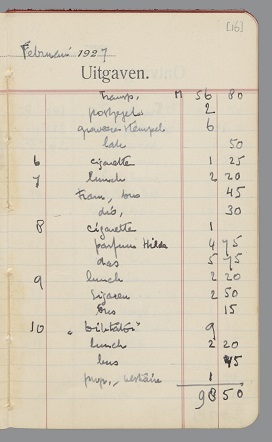 [16]
Februari 1927
Uitgaven.
transp. M 56 80
postzegels 2
6
50
6 cigarette 1 25
7 lunch 2 20
tram, bus 45
30
8 cigarette 1
parfum Hilda 4 75
das 5 75
9 lunch 2 20
sigaren 2 50
bus 15
10 9
lunch 2 20
bus 45
1
98 50